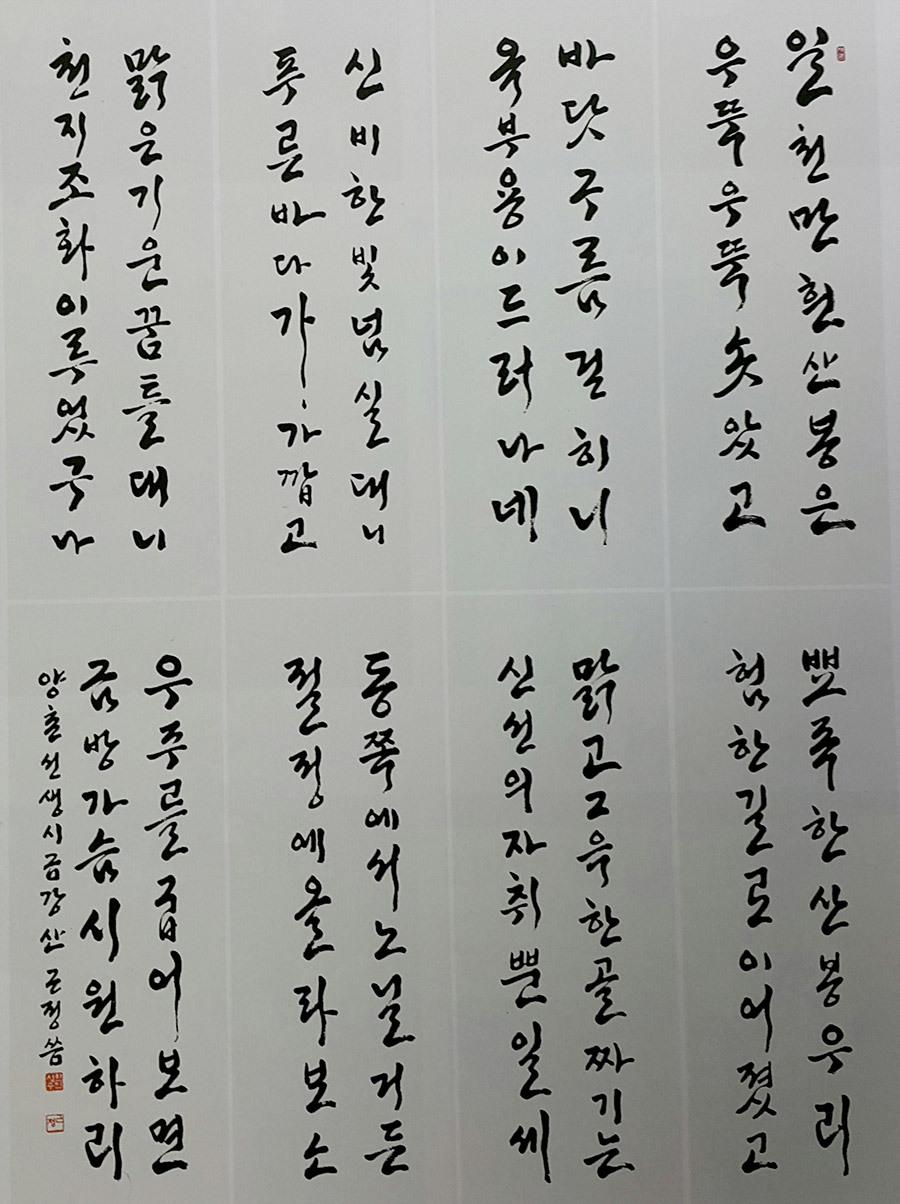 일천만헌산봉은
우뚝우뚝솟았고
바닷구름걷히니
옥부용이드러나네
신비한빛넘실대니
푸른바다가가깝고
맑은기운꿈틀대니
천지조화이루었구나
뾰족한산봉우리
험한길로이어졌고
맑고그윽한골짜기는
신선의자취뿐일세
동쪽에서노닐거든
절정에올라보소
우주를굽어보면
금방가슴시원하리
양촌선생시금강산 근정씀